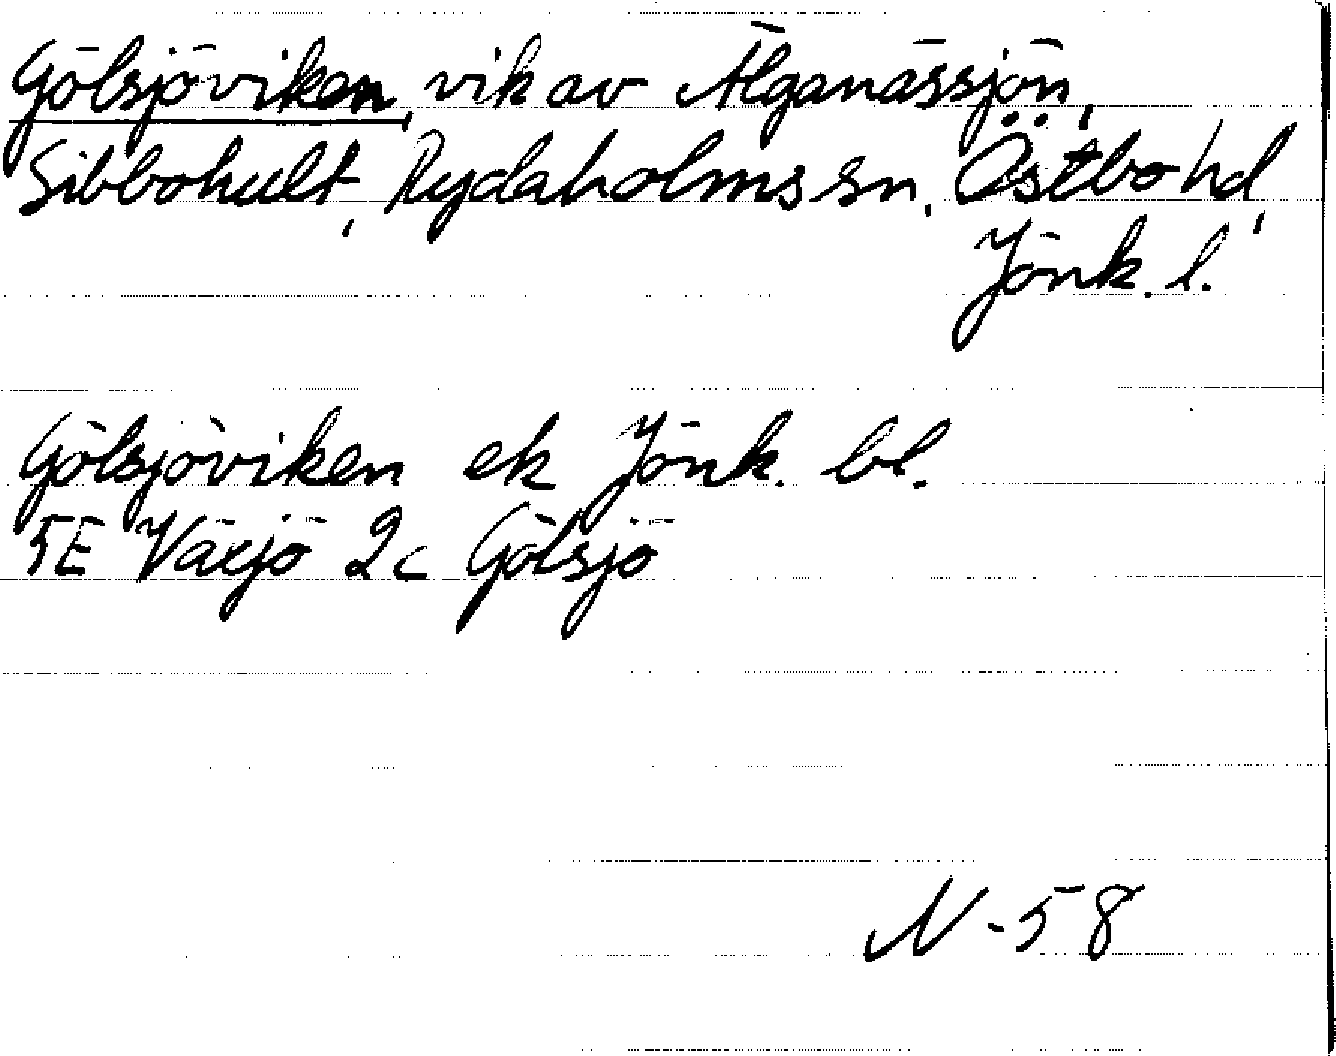 Gölsjöviken, vik av Älganässjön,
Sibbohult, Rydaholms sn, Östbo hd,
Jönk. l.
Gölsjöviken ek Jönk. bl.
5E Växjö 2c Gölsjö
N-58